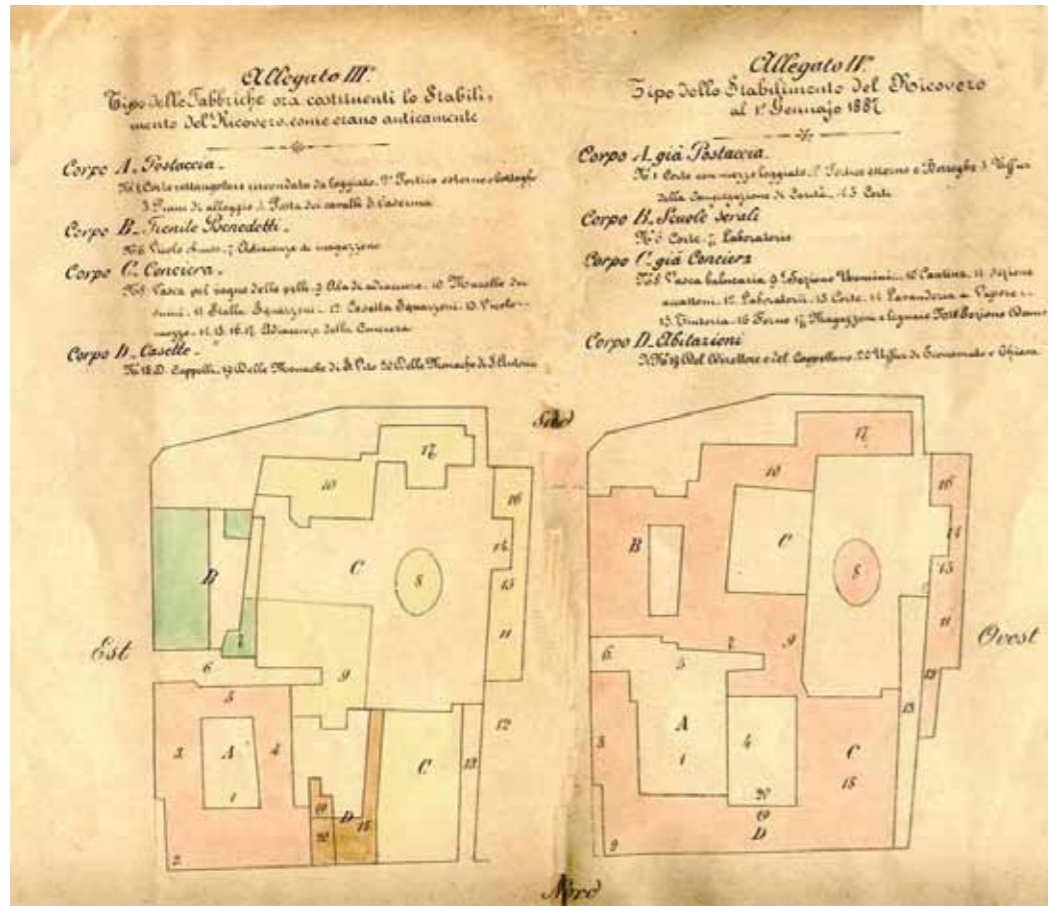 Allegato III°
Tipo delle Fabbriche ora costituenti lo Stabili-
mento del Ricovero, come erano anticamente
Corpo A. Postaccia_
N° 1. Corte rettangolare circondata da loggiato_ 2° Portico esterno e botteghe
3. Piani di alloggio 4. Posta dei cavalli 5. Caserma
Corpo B_ Fienile Benedetti_
N° 6. Vicolo 7. Adiacenze di magazzeno
Corpo C. Conciera_
N° 8. Vasca pel bagno delle pelli_ 9. Ala di adiacenza_ 10. Macello dei
11. Stalla Squarzoni_ 12. Casetta Squarzoni. 13. Vicolo
mozzo_ 14. 15. 16. 17. Adiacenze della Conciera
Corpo D_ Casette_
N° 18. D. Cappelli, 19. Delle Monache di S. Vito 20. Delle Monache di S. Antonio
Allegato IV°
Tipo dello Stabilimento del Ricovero
al 1° Gennajo 1887
Corpo A. già Postaccia_
N° 1 Corte con mezzo loggiato_ 2° Portico esterno e Botteghe 3. Uffici
della Congregazione di Carità_ 4. 5. Corti
Corpo B. Scuole serali
N° 6 Corte_ 7. Laboratorio
Corpo C. già Conciera
N° 8. Vasca balnearia 9. Sezione Uomini_ 10. Cantina_ 11. Sezione
12. Laboratorii_ 13. Corte_ 14. Lavanderia a Vapore_
15. Tintoria_ 16. Forno 17. Magazzeni e legnaie 18. Sezione Donne
Corpo D. Abitazioni
N° 19. Del Direttore e del Cappellano. 20. Uffici di Economato e Chiesa
Sud
17
10
16
B
C
8
14
15
11
7
Est
6
9
5
3
A
4
1
2
19
D
18
20
C
13
12
17
10
16
B
C
8
14
15
11
Ovest
6
5
7
9
12
3
A
4
13
1
C
20
18
19
D
2
Nord